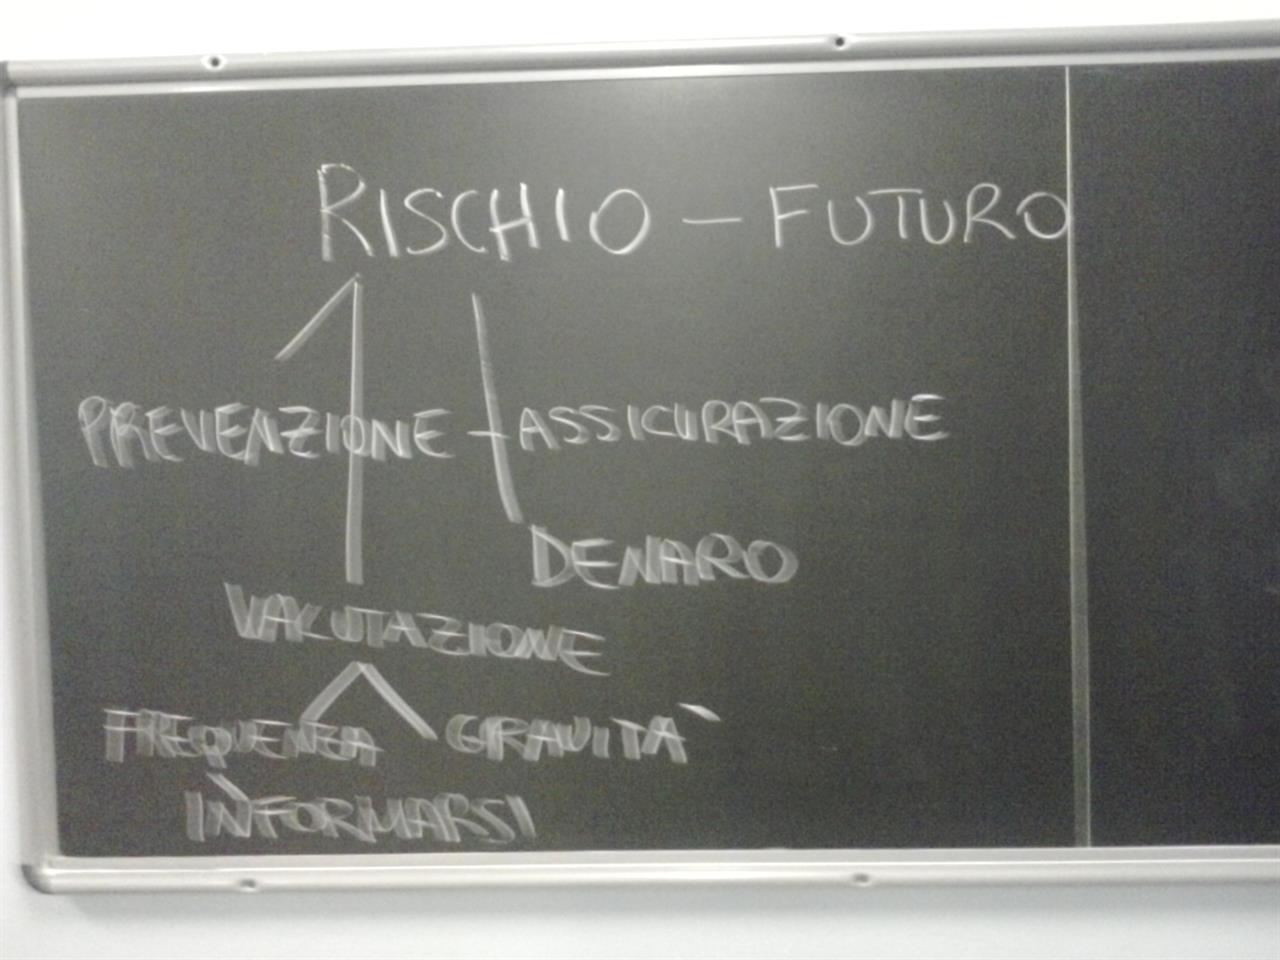 RISCHIO - FUTURO
PREVENZIONE - ASSICURAZIONE
DENARO
VALUTAZIONE
FREQUENZA GRAVITÀ
INFORMARSI